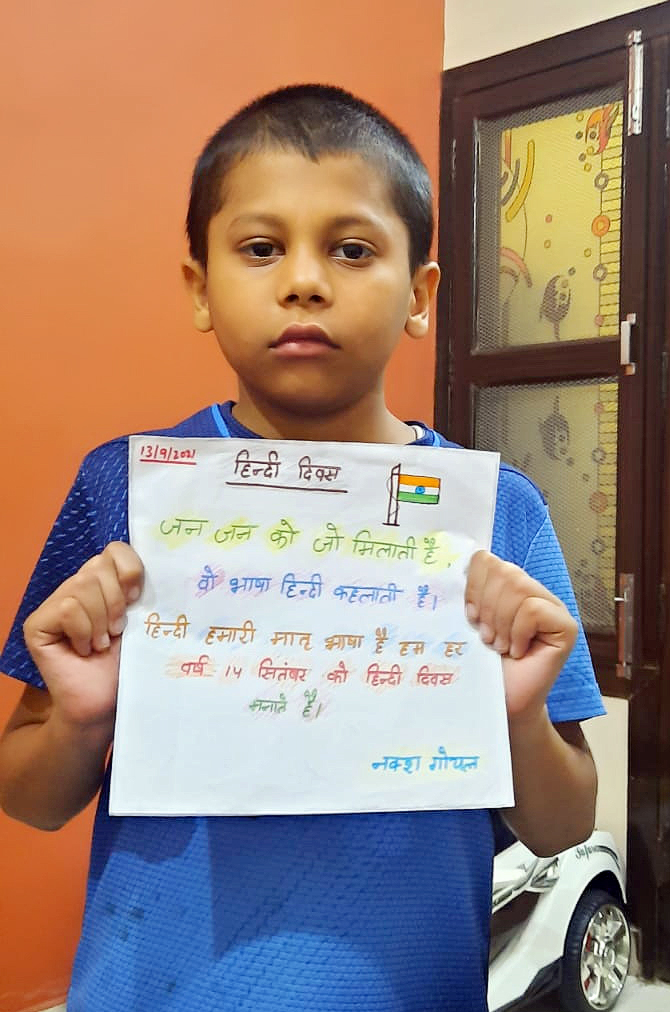 13/9/2021
हिन्दी दिवस
जन जन को जो मिलाती है,
वो भाषा हिन्दी कहलाती है।
हिन्दी हमारी मातृ भाषा है हम हर
वर्ष 14 सितंबर को हिन्दी दिवस
मनाते है।
नक्श गोयल